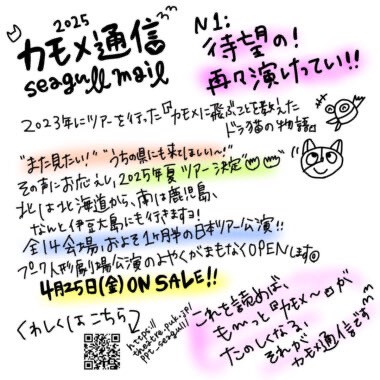 2025
カモメ通信
seagull mail
N1:
待望の!
再々演けってい!!
2023年にツアーを行った『カモメに飛ぶことを教えた
ドラ猫の物語』
"また見たい!" "うちの県にも来てほしい〜!"
その声にお応えし、2025年夏ツアー決定
北は北海道から、南は鹿児島、
なんと伊豆大島にも行きますョ!
全14会場、およそ1ヶ月半の日本ツアー公演!!
プーク人形劇場公演のよやくがまもなくOPENします◎
4月25日(金)ON SALE!!
くわしくはこちら
https://
theatre.puk.jp/
ppt-seagull/
これを読めば、
も〜っと『カモメ〜』が
たのしくなる、
それが
カモメ通信です